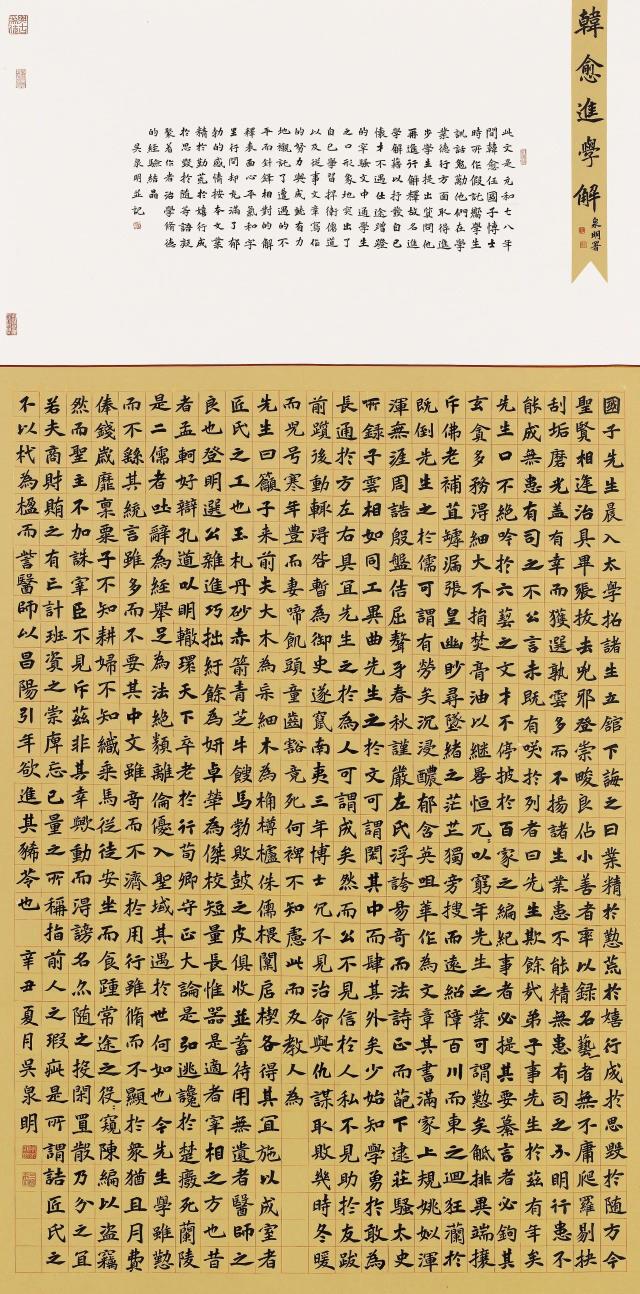 韓愈進學解
泉明署
此文是元和七八年
間韓愈任國子博士
時所作假託嚮學生
訓話勉勵他們在學
業德行方面取得進
步學生提出質問他
再進行解釋故名進
學解藉以抒發自己
懷才不遇仕途蹭蹬
的牢騷文中通學生
之口形象地突出了
自己學習捍衛儒道
以及從事文章寫作
的努力與成就有力
地襯託了遭遇的不
平而針鋒相對的解
釋表面心平氣和字
里行間却充滿了郁
勃的感情按本文業
精於勤荒於嬉行成
於思毀於隨等語凝
聚着作者治學修德
的經驗結晶
吳泉明並記
國子先生晨入太學招諸生立館下誨之曰業精於勤荒於嬉行成於思毀於隨方今
聖賢相逢治具畢張拔去兇邪登崇畯良佔小善者率以錄名藝者無不庸爬羅剔抉
刮垢磨光蓋有幸而獲選孰雲多而不揚諸生業患不能精無患有司之不明行患不
能成無患有司之不公言未既有咲於列者曰先生欺餘哉弟子事先生於茲有年矣
先生口不絕吟於六藝之文才不停披於百家之編紀事者必提其要纂言者必鉤其
玄貪多務得細大不捐焚膏油以繼晷恒兀兀以窮年先生之業可謂勤矣觝排異端攘
斥佛老補苴罅漏張皇幽眇尋墜緒之茫茫獨旁搜而遠紹障百川而東之迴狂瀾於
既倒先生之於儒可謂有勞矣沉浸醲郁含英咀華作為文章其書滿家上規姚姒渾
渾無涯周誥殷盤佶屈聱牙春秋謹嚴左氏浮誇易奇而法詩正而葩下逮莊騷太史
所錄子雲相如同工異曲先生之於文可謂閎其中而肆其外矣少始知學勇於敢為
長通於方左右具宜先生之於為人可謂成矣然而公不見信於人私不見助於友跋
前躓後動輒得咎暫為御史遂竄南夷三年博士冗不見治命與仇謀取敗幾時冬暖
而兒号寒年豐而妻啼飢頭童齒豁竟死何裨不知慮此而反教人為
先生曰籲子來前夫大木為杗細木為桷欂櫨侏儒椳闑扂楔各得其宜施以成室者
匠氏之工也玉札丹砂赤箭青芝牛餿馬勃敗鼓之皮俱收並蓄待用無遺者醫師之
良也登明選公雜進巧拙紆餘為妍卓犖為傑校短量長惟器是適者宰相之方也昔
者孟軻好辯孔道以明轍環天下卒老於行荀卿守正大論是弘逃讒於楚廢死蘭陵
是二儒者吐辭為經舉足為法絕類離倫優入聖域其遇於世何如也今先生學雖勤
而不繇其統言雖多而不要其中文雖奇而不濟於用行雖脩而不顯於衆猶且月費
俸錢歲靡稟粟子不知耕婦不知織乘馬從徒安坐而食踵常途之役役窺陳編以盜竊
然而聖主不加誅宰臣不見斥茲非其幸歟動而得謗名亦隨之投閑置散乃分之宜
若夫商財賄之有亡計班資之崇庳忘己量之所稱指前人之瑕疵是所謂詰匠氏之
不以杙為楹而訾醫師以昌陽引年欲進其豨苓也 辛丑夏月吳泉明